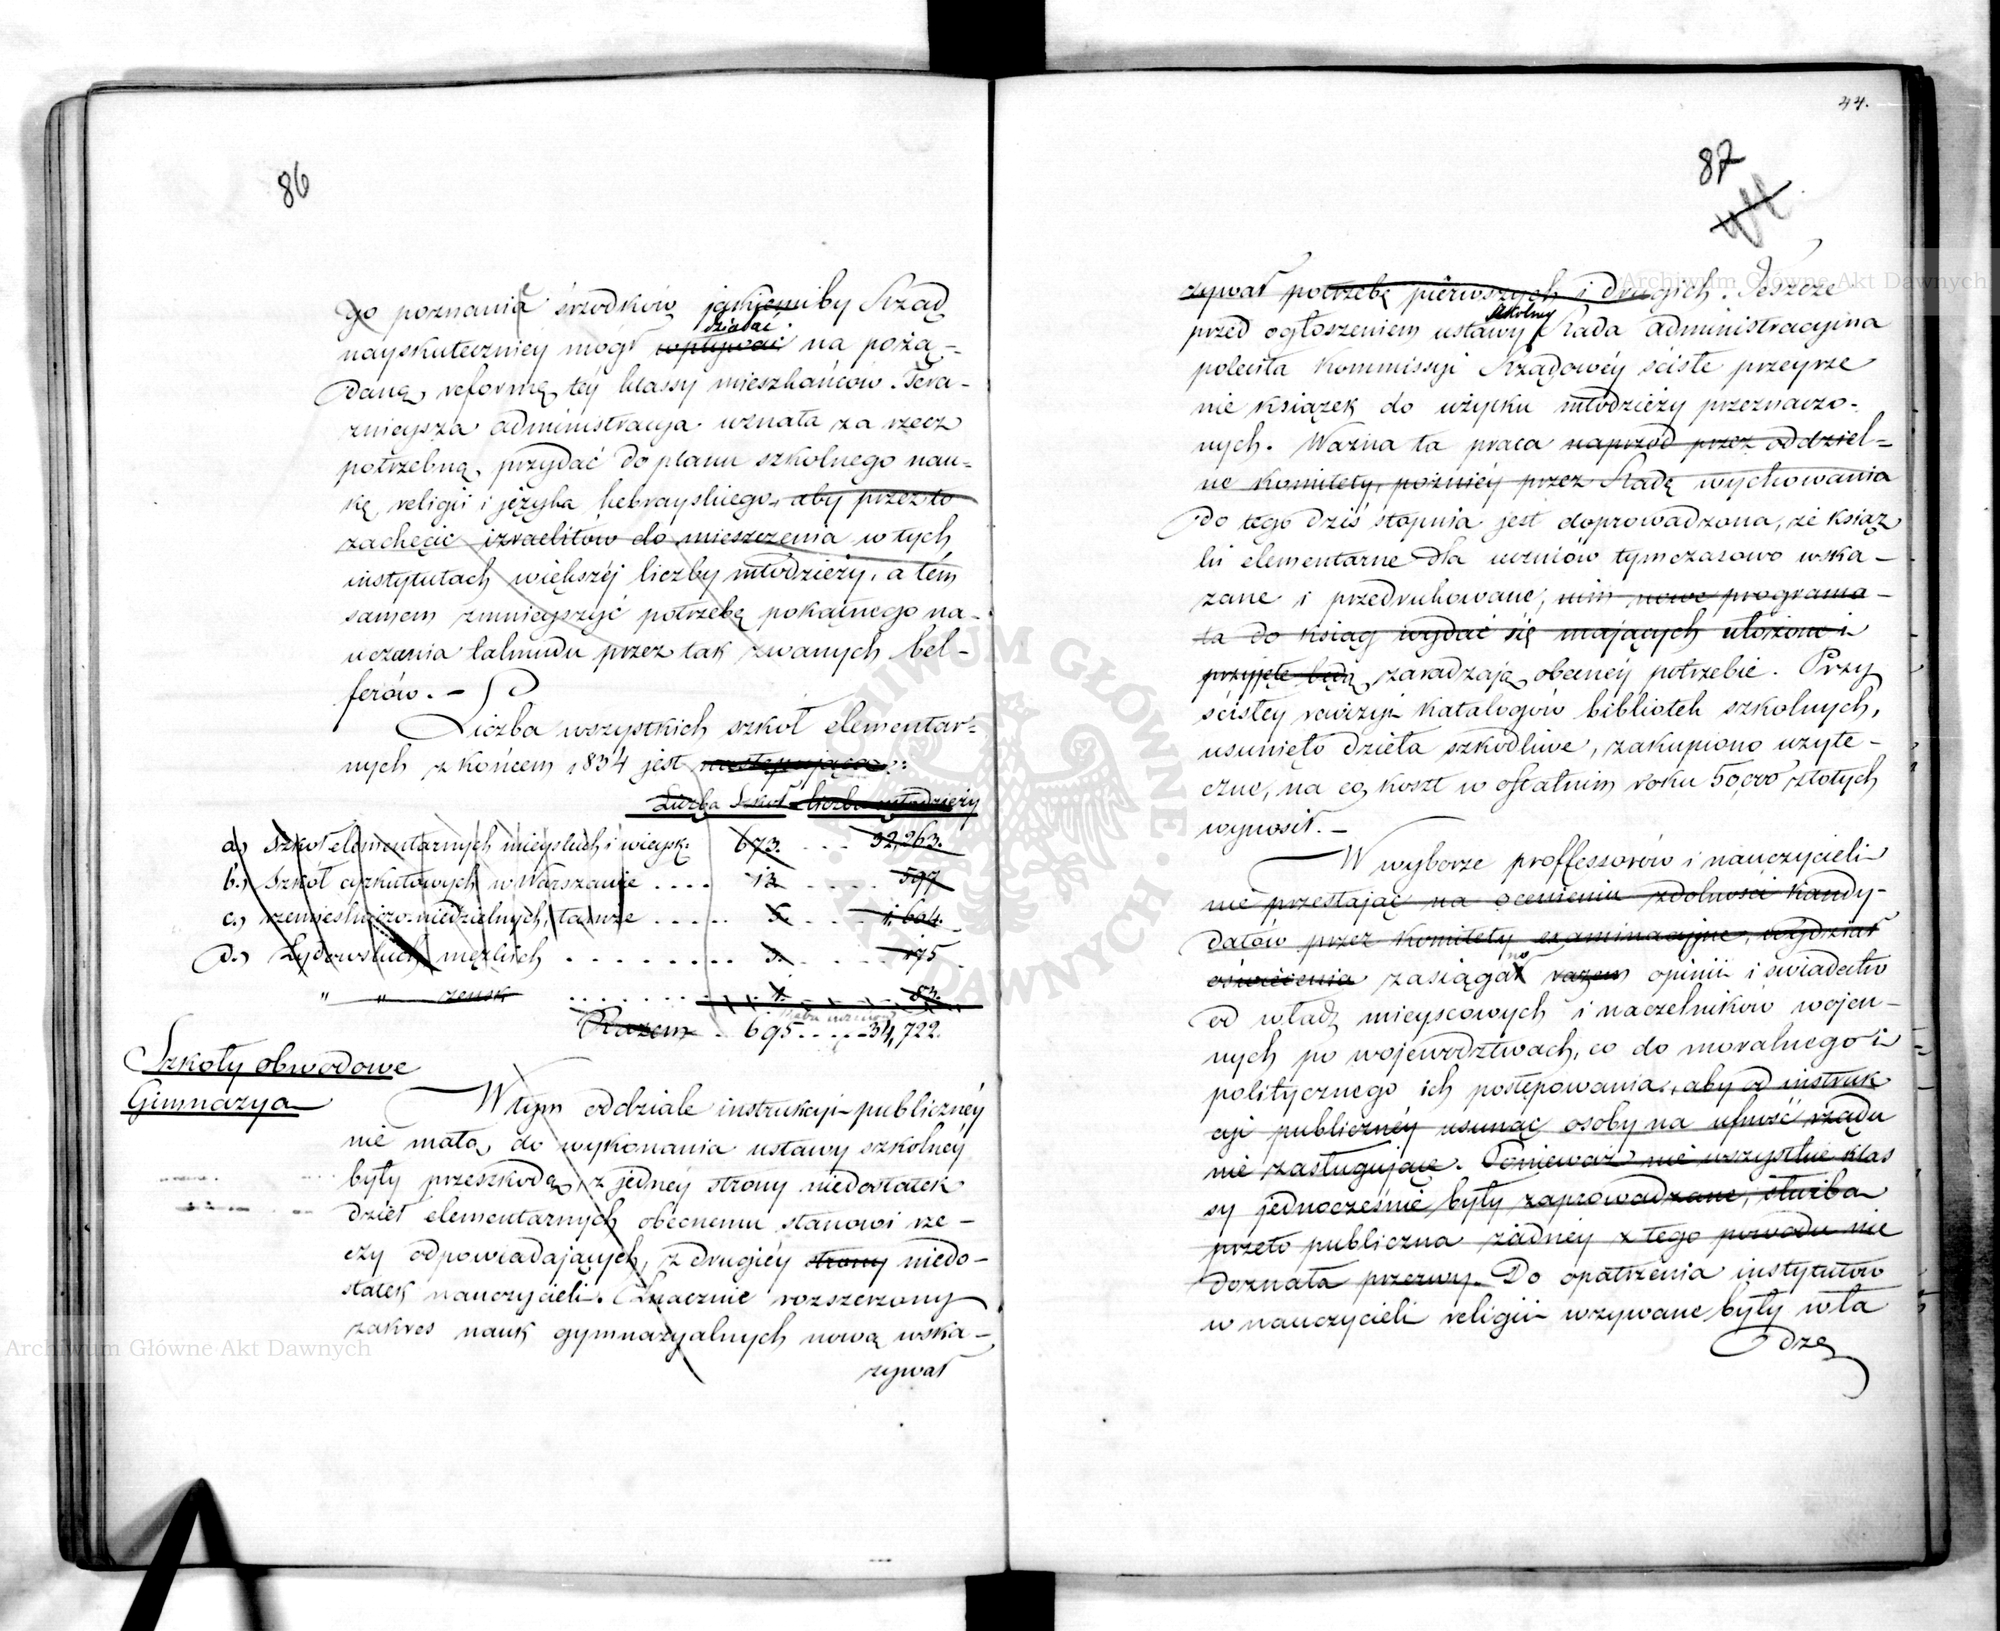 86
go poznania śrzodków jakiemiby Rząd
działać
nayskuteczniey mógł wpływać na pożą-
daną reformę téy klassy mieszkańców. Tera-
znieysza administracya uznała za rzecz
potrzebną, przydać do planu szkolnego nau-
kę religii i języka hebrayskiego, aby przez to
zachęcić izraelitów do mieszczenia w tych
instytutach większéj liczby młodzieży, a tém
samem zmnieyszyć potrzebę pokątnego na-
uczania talmudu przez tak zwanych bel-
ferów. -
Liczba wszystkich szkół elementar-
nych z końcem 1834 jest następująca:
Liczba Szkół liczba młodzieży
a.) Szkół elementarnych mieyskich i wieysk. 673. .... 32,263.
b.) Szkół cyrkułowych w Warszawie .... 13 ..... 597
c.) rzemieślniczo-niedzielnych, tamże ..... 5. ..... 1,604.
d.) Żydowskich męzkich ........ 3. ..... 175
" " żeńsk ........ 1. ..... 83.
Razem .. 695 ..... 34,722.
Szkoły obwodowe
Gimnazya
W tym oddziale instrukcyi publicznéy
nie małą do wykonania ustawy szkolnéy
były przeszkodą, z jednéy strony niedostatek
dzieł elementarnych obecnemu stanowi rze-
czy odpowiadających, z drugiéy strony niedo-
statek nauczycieli. Znacznie rozszerzony
zakres nauk gymnazyalnych nową wska-
zywał
44.
87
44
zywał potrzebę pierwszych i drugich. Jeszcze
szkolney
przed ogłoszeniem ustawy Rada administracyina
poleciła Kommissyi Rządowéy ściśłe przeyrze
nie książek do użytku młodzieży przeznaczo-
nych. Ważna ta praca naprzód przez oddziel-
ne Komitety, późniéy przez Radę wychowania
do tego dziś stopnia jest doprowadzona, że książ
ki elementarne dla uczniów tymczasowo wska-
zane i przedrukowane, nim nowe programa-
ta do ksiąg wydać się mających ułożone i
przyjęte będą zaradzają obecnéy potrzebie. Przy
ścisłey rewizyi Katalogów bibliotek szkolnych,
usunięto dzieła szkodliwe, zakupiono użyte-
czne, na co koszt w ostatnim roku 50,000 złotych
wynosił. -
W wyborze proffessorów i nauczycieli
nie przestając na ocenieniu zdolności Kandy-
datów przez Komitety examinacyjne, wydział
no
oświécenia zasiągał razem opinii i świadectw
od władz mieyscowych i naczelników wojen-
nych po województwach, co do moralnego i
politycznego ich postępowania, aby od instruk
cyi publicznéy usunąć osoby na ufność rządu
nie zasługujące. Ponieważ nie wszystkie klas
sy jednocześnie były zaprowadzane, służba
przeto publiczna żadnéy z tego powodu nie
doznała przerwy. Do opatrzenia instytutów
w nauczycieli religii wzywane były wła
dze
Archiwum Główne Akt Dawnych
Archiwum Główne Akt Dawnych
ARCHIWUM GŁÓWNE AKT DAWNYCH